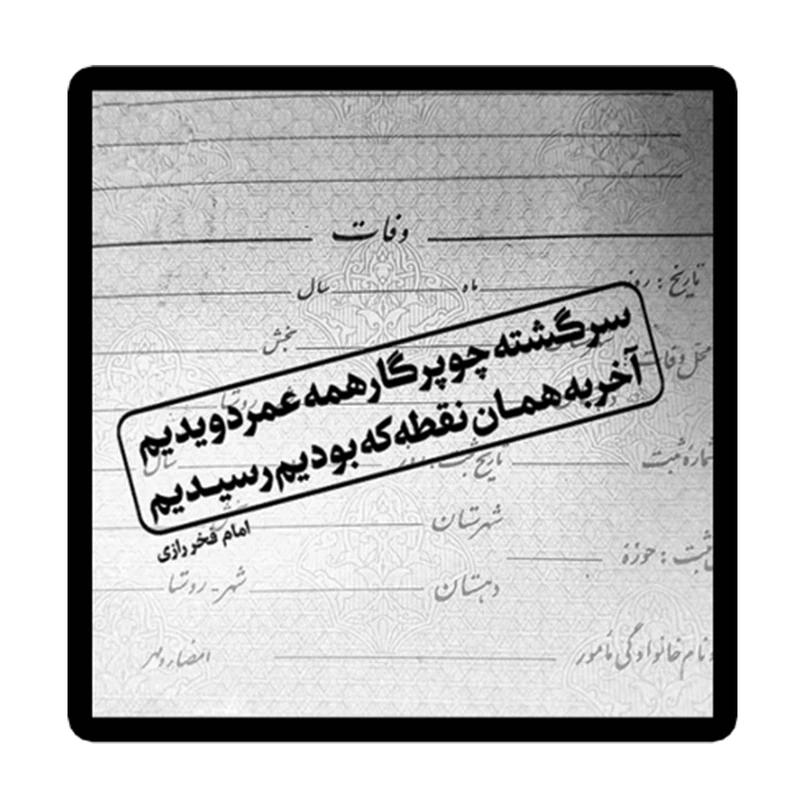 وفات
تاریخ : روز ماه سال
محل وفات بخش
سرگشته چو پرگار همه عمر دویدیم
آخر به همان نقطه که بودیم رسیدیم
امام فخر رازی
شماره ثبت تاریخ ثبت : روز سال
شهرستان
ثبت : حوزه
دهستان شهر - روستا
نام خانوادگی مأمور امضاء و مهر